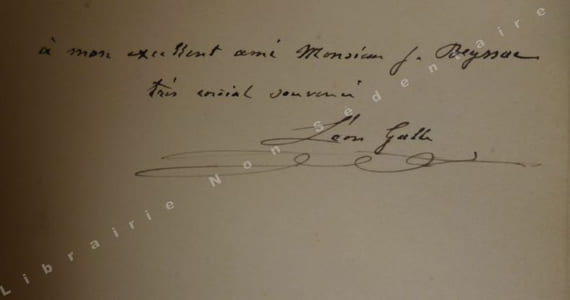 à mon excellent ami Monsieur J. Beyssac
très cordial souvenir
Léon Galle
Librairie Non Sédentaire